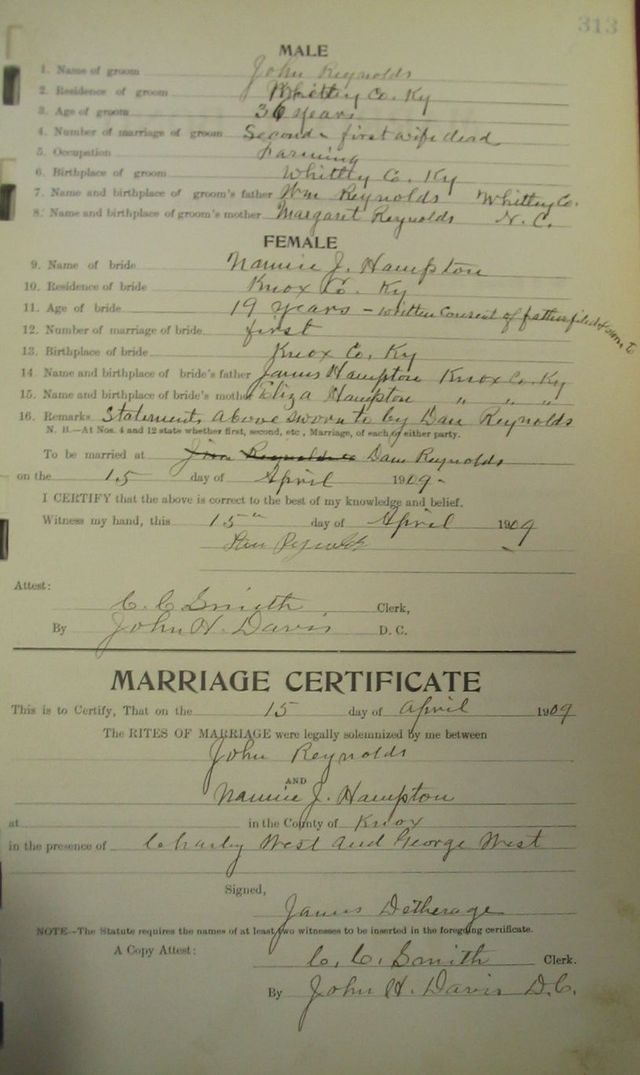 313
MALE
1. Name of groom John Reynolds
2. Residence of groom Whittly Co. Ky
3. Age of groom 36 years
4. Number of marriage of groom Second - first wife dead
5. Occupation Farming
6. Birthplace of groom Whittly Co. Ky
7. Name and birthplace of groom's father Wm Reynolds Whittly Co.
8. Name and birthplace of groom's mother Margaret Reynolds N. C.
FEMALE
9. Name of bride Nannie J. Hampton
10. Residence of bride Knox Co. Ky
11. Age of bride 19 years - written consent of father filed & sworn to
12. Number of marriage of bride first
13. Birthplace of bride Knox Co. Ky
14. Name and birthplace of bride's father James Hampton Knox Co. Ky
15. Name and birthplace of bride's mother Eliza Hampton " " "
16. Remarks Statements above sworn to by Dan Reynolds
N. B.—At Nos. 4 and 12 state whether first, second, etc., Marriage, of each of either party.
To be married at Dan Reynolds
on the 15 day of April 1909-
I CERTIFY that the above is correct to the best of my knowledge and belief.
Witness my hand, this 15" day of April 1909
Dan Reynolds
Attest:
C. C. Smith Clerk,
By John H. Davis D. C.
MARRIAGE CERTIFICATE
This is to Certify, That on the 15 day of April 1909
The RITES OF MARRIAGE were legally solemnized by me between
John Reynolds
AND
Nannie J. Hampton
at in the County of Knox
in the presence of Charley West and George West
Signed,
James Detherage
NOTE—The Statute requires the names of at least two witnesses to be inserted in the foregoing certificate.
A Copy Attest: C. C. Smith Clerk.
By John H. Davis D.C.